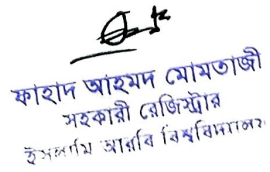 ফাহাদ আহমদ মোমতাজী
সহকারী রেজিস্ট্রার
ইসলামি আরবি বিশ্ববিদ্যালয়